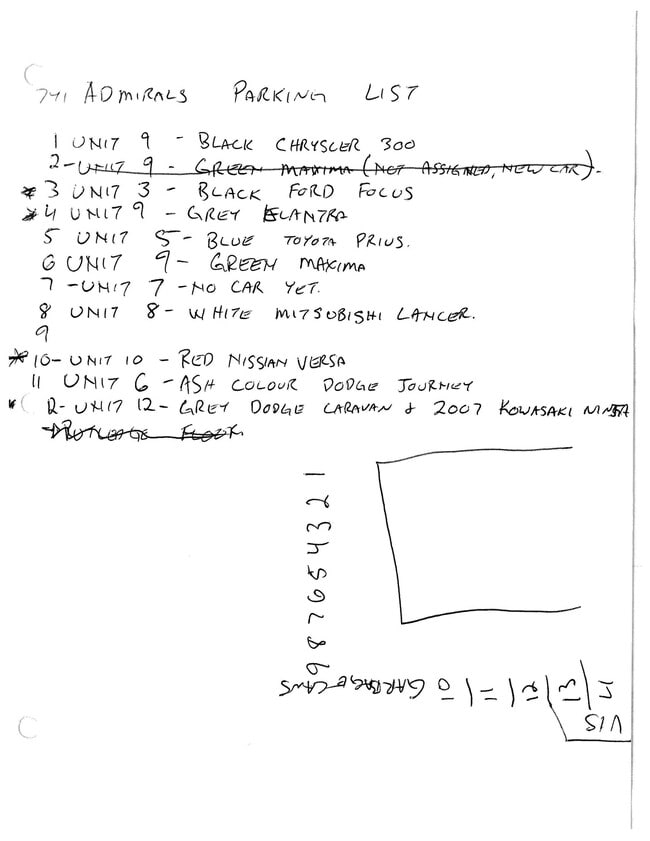 741 ADMIRALS PARKING LIST
1 UNIT 9 - BLACK CHRYSCLER 300
2-UNIT 9 - GREEN MAXIMA (NOT ASSIGNED, NEW CAR).
*3 UNIT 3 - BLACK FORD FOCUS
*4 UNIT 9 - GREY ELANTRA
5 UNIT 5 - BLUE TOYOTA PRIUS.
6 UNIT 9 - GREEN MAXIMA
7 -UNIT 7 -NO CAR YET.
8 UNIT 8 - WHITE MITSUBISHI LANCER.
9
*10- UNIT 10 - RED NISSIAN VERSA
11 UNIT 6 - ASH COLOUR DODGE JOURNEY
* 12- UNIT 12- GREY DODGE CARAVAN & 2007 KOWASAKI NINJA
1 2 3 4 5 6 7 8 9
GARBAGE CANS 10 11 12 13
VIS